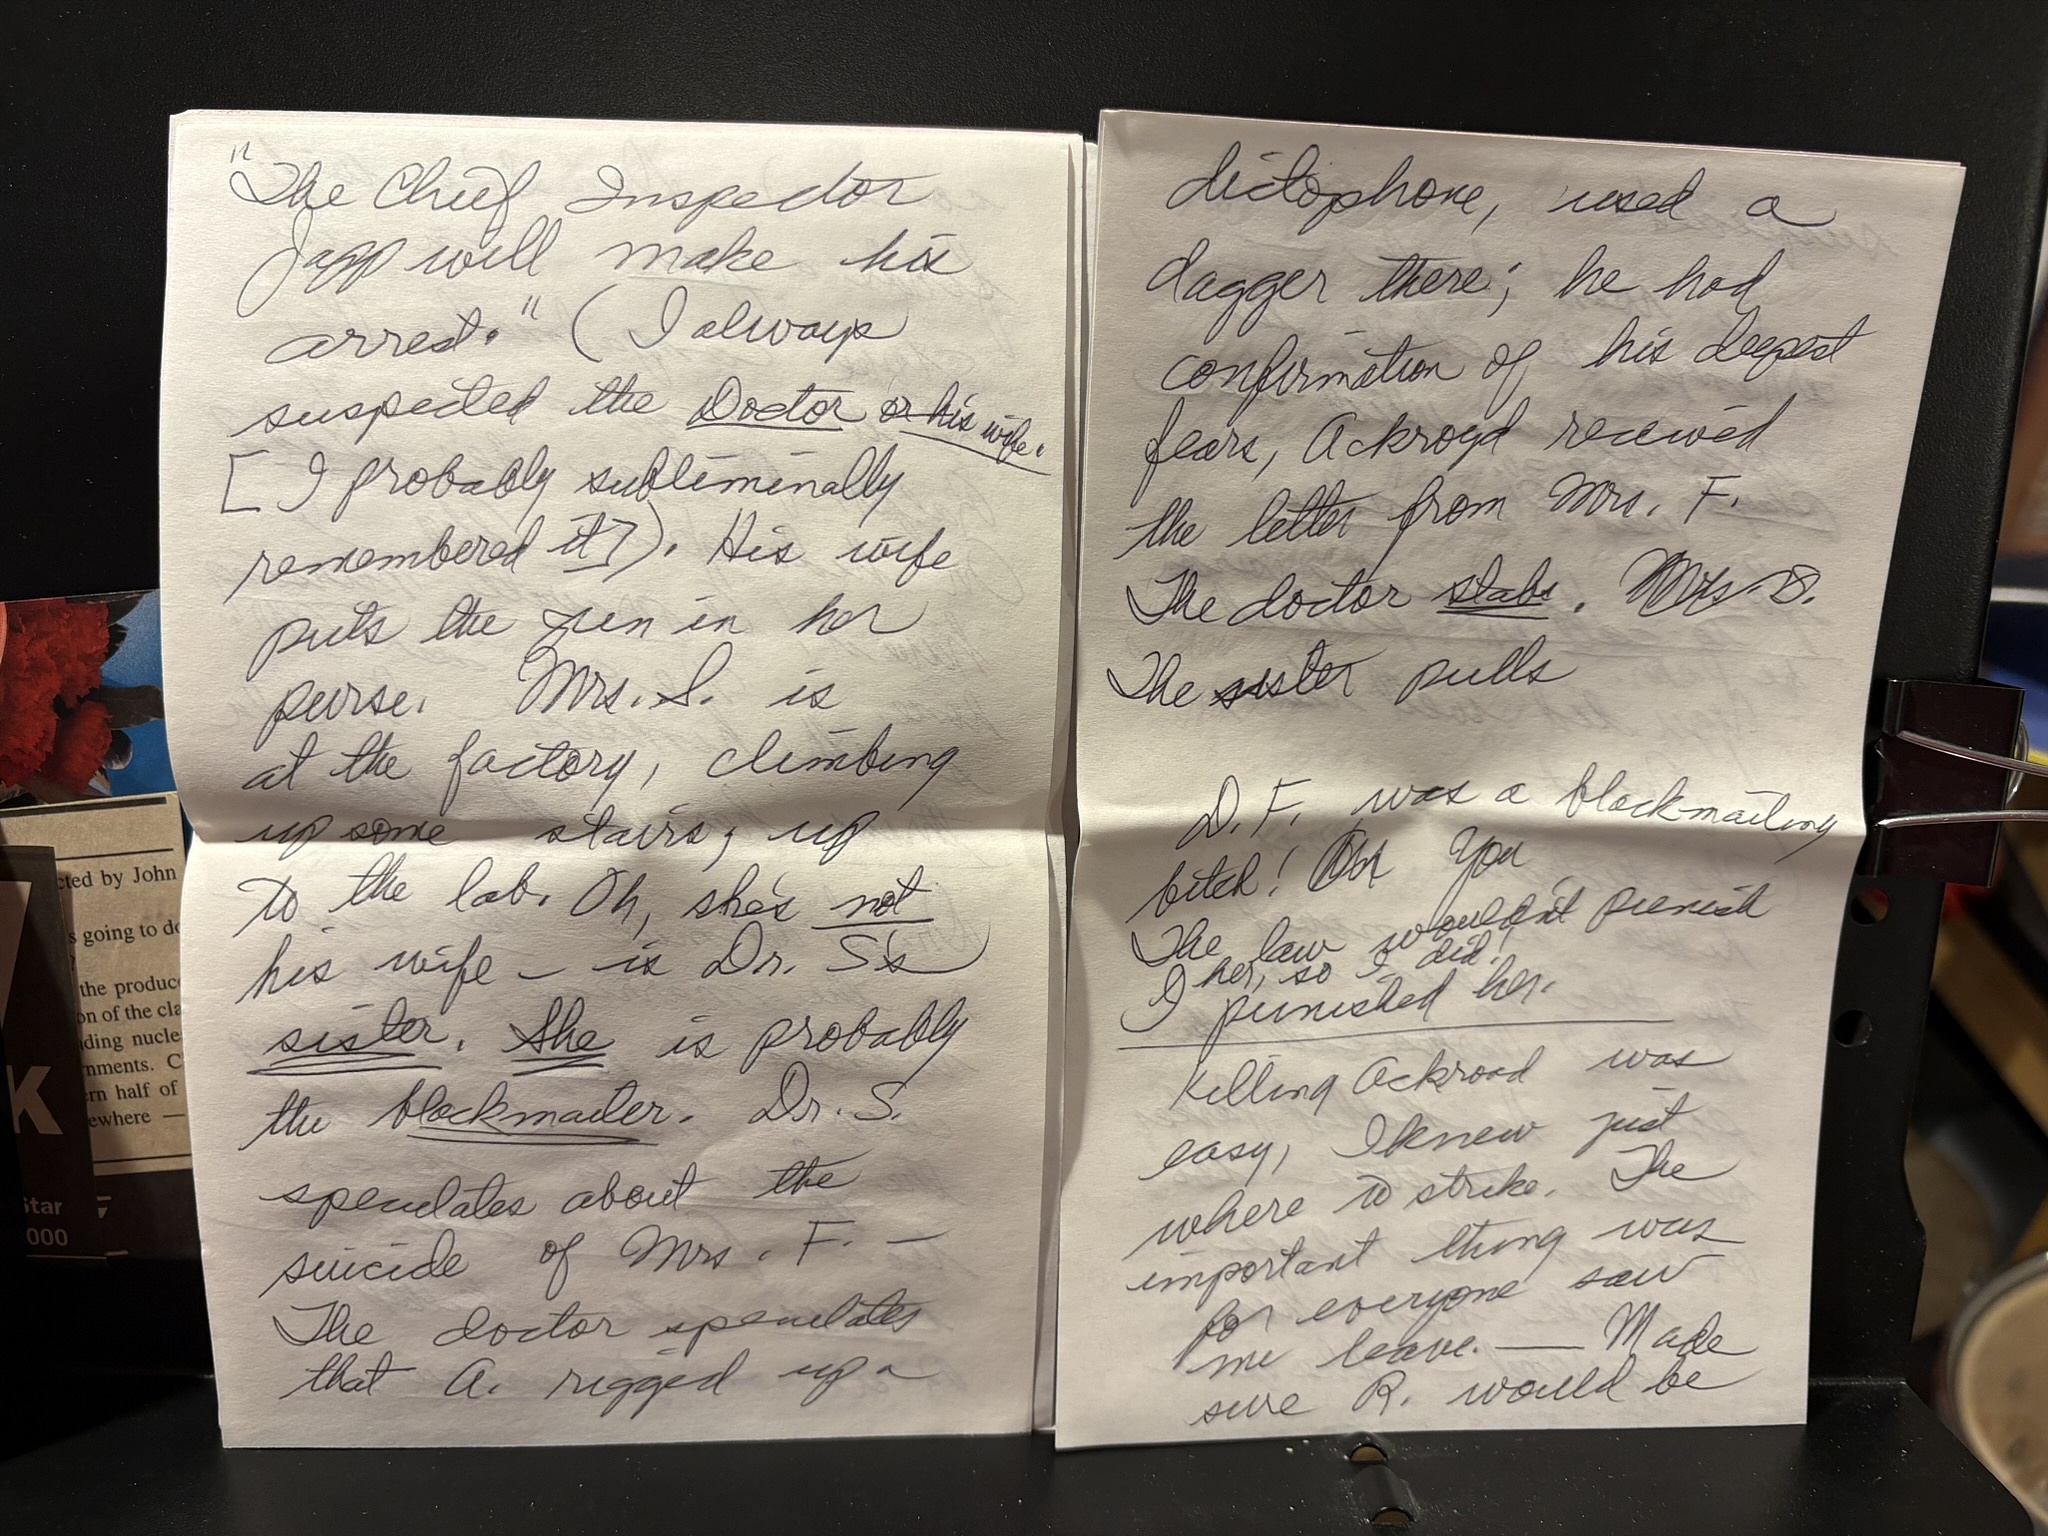 "The Chief Inspector
Japp will make his
arrest." (I always
suspected the Doctor or his wife.
[I probably subliminally
remembered it]). His wife
puts the gun in her
purse. Mrs. S. is
at the factory, climbing
up some stairs, up
to the lab. Oh, she's not
his wife – is Dr. S's
sister. She is probably
the blackmailer. Dr. S.
speculates about the
suicide of Mrs. F. —
The doctor speculates
that A. rigged up a
dictophone, used a
dagger there; he had
confirmation of his deepest
fears, Ackroyd received
the letter from Mrs. F.
The doctor stabs. Mrs. S.
The sister pulls
D.F. was a blackmailing
bitch! You
The law wouldn't punish
her, so I did!
I punished her.
Killing Ackroad was
easy, I knew just
where to strike. The
important thing was
for everyone saw
me leave. — Made
sure R. would be
cted by John
s going to do
the produc
on of the cla
ding nucle
nments. C
ern half of
ewhere —
K
Star
000